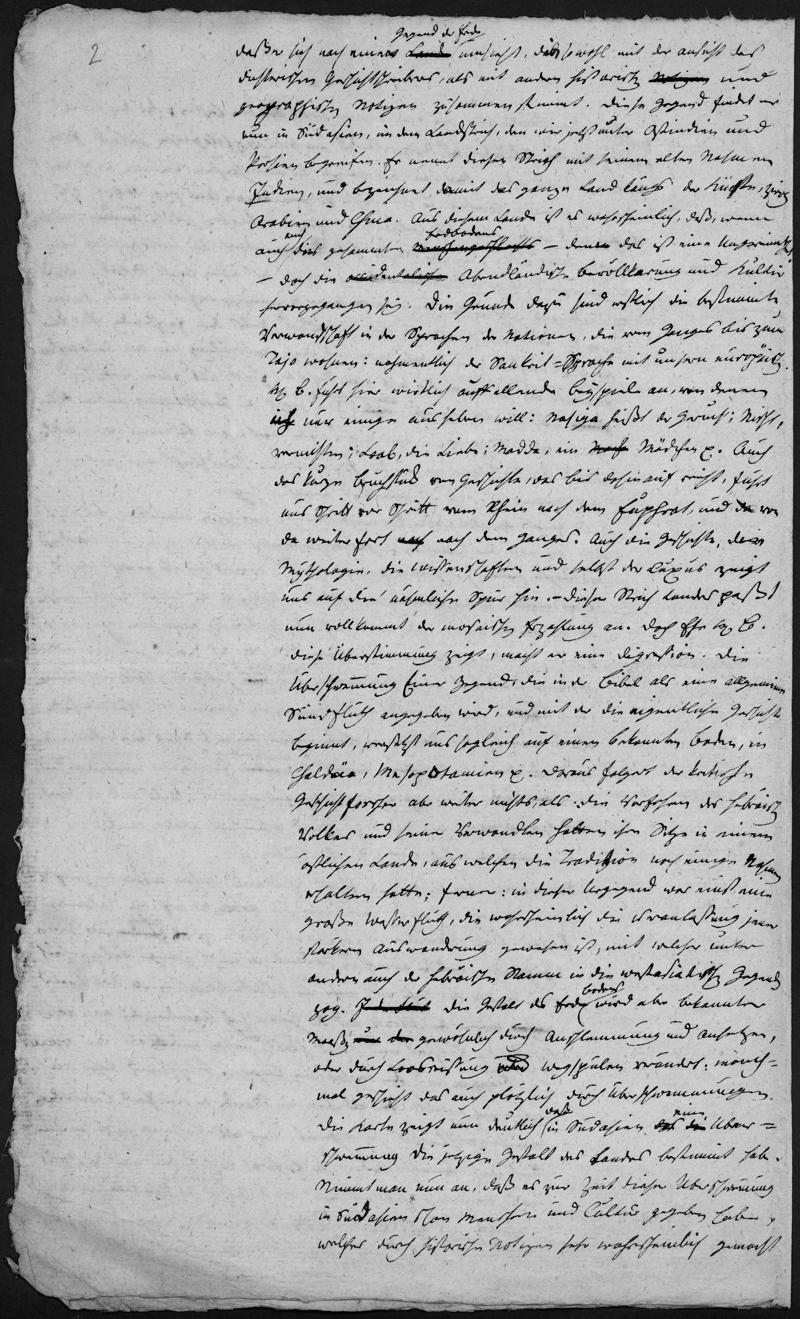 2
Gegend der Erde
daß er sich nach einer Land umsieht, die sowohl mit der Ansicht des
dichterischen Geschichtschreibers, als mit andern historisch Notizen und
geographischen Notizen zusammen stimmt. Diese Gegend findet er
nun in Südasien, in dem Landstrich, den wir jetzt unter Ostindien und
Persien begreifen. Er nennt diesen Strich mit seinem alten Nahmen
Indien, und bezeichnet damit das ganze Land längs der Küste, zwisch
Arabien und China. Aus diesem Lande ist es wahrscheinlich, daß, wenn
Erdbodens
auch das gesammten Menschengeschlechts – denn das ist eine
– doch die occidentalische Abendländische bevölkerung und Kultur
hervorgegangen sey. Die Gründe dazu sind erstlich die bestimmte
Verwandschaft in der Sprachen der Nationen, die vom Ganges bis zum
Tajo wohnen: nahmentlich der Sanskrit=Sprache mit unsern europäisch.
H. B. führt hier wirklich auffallende beyspiele an, von denen
ich nur einige ausheben will: Nasiga heißt der Geruch; Mischt,
vermischen; Loab, die Liebe; Madda, ein Mädchen. Auch
das kurze Bruchstück von Geschichte, das bis dahinauf reicht, führt
uns Schritt vor Schritt vom Rhein nach dem Euphrat, und da von
da weiter fort auf nach dem Ganges. Auch die Geschichte, die
Mythologie, die Wissenschaften und selbst der Luxus zeigt
uns auf die nähmliche Spur hin. – Dieser Strich Landes paßt
nun vollkommt der mosaischen Erzählung an. Doch Ehe H. B.
diese Überstimmung zeigt, macht er eine digression. Die
Überschwemmung Einer Gegend, die in der Bibel als eine allgemeine
Sündfluth angegeben wird, und mit der die eigentliche Geschichte
beginnt, versetzt uns sogleich auf einen bekannten Boden, in
Chaldäa, Mesopotamien. Daraus folgert der kritische
Geschichtforscher aber weiter nichts, als: die Vorfahren des hebräisch
Volkes und seine Verwandten hatten ihre Sitze in einem
östlichen Lande, aus welchen die Tradition noch einige Nahmen
erhalten hatte; ferner: in dieser Urgegend war einst eine
große Wasserfluth, die wahrscheinlich die Veranlassung jener
stärkern Auswanderung gewesen ist, mit welcher unter
andern auch der hebräische Stamm in die westasiatische Gegend
bodens
zog. die Gestalt des Erd wird aber bekannter
Maaßen gewöhnlich durch Anschlemmung und ansetzen,
oder durch Loosreissung und wegspülen verändert: manch=
mal geschieht das auch plötzlich durch Überschwemmungen.
daß eine
Die Karte zeigt nun deutlich in Südasien das die Über=
schwemmung die jetzige Gestalt des Landes bestimmt habe.
Nimmt man nun an, daß es zur Zeit dieser Überschwemmung
in Südasien schon Menschen und Cultur gegeben habe,
welches durch historische Notizen sehr wahrscheinlich gemacht